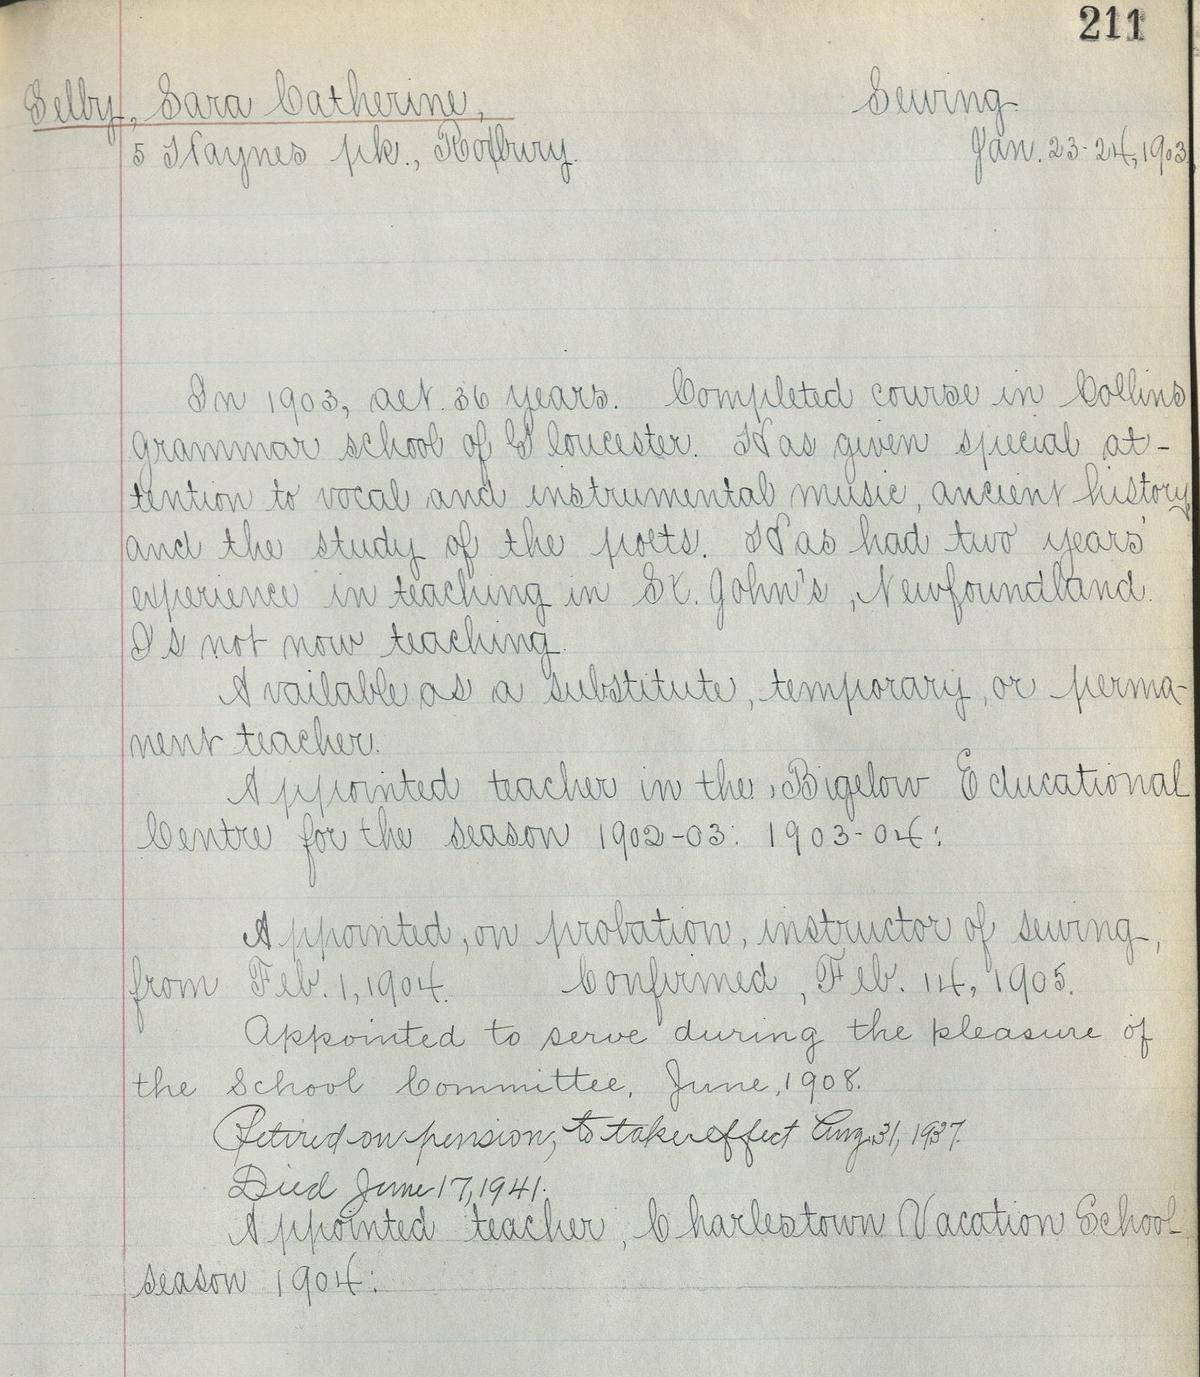 211
Selby, Sara Catherine, Sewing
5 Haynes pk., Roxbury. Jan. 23-24, 1903
In 1903, aet. 36 years. Completed course in Collins
grammar school of Gloucester. Has given special at-
tention to vocal and instrumental music, ancient history
and the study of the poets. Has had two years'
experience in teaching in St. John's, Newfoundland.
Is not now teaching.
Available as a substitute, temporary, or perma-
nent teacher.
Appointed teacher in the Bigelow Educational
Centre for the season 1902-03: 1903-04:
Appointed, on probation, instructor of sewing,
from Feb. 1, 1904. Confirmed, Feb. 14, 1905.
Appointed to serve during the pleasure of
the School Committee, June, 1908.
Retired on pension, to take effect Aug. 31, 1937.
Died June 17, 1941.
Appointed teacher, Charlestown Vacation School
season 1904: